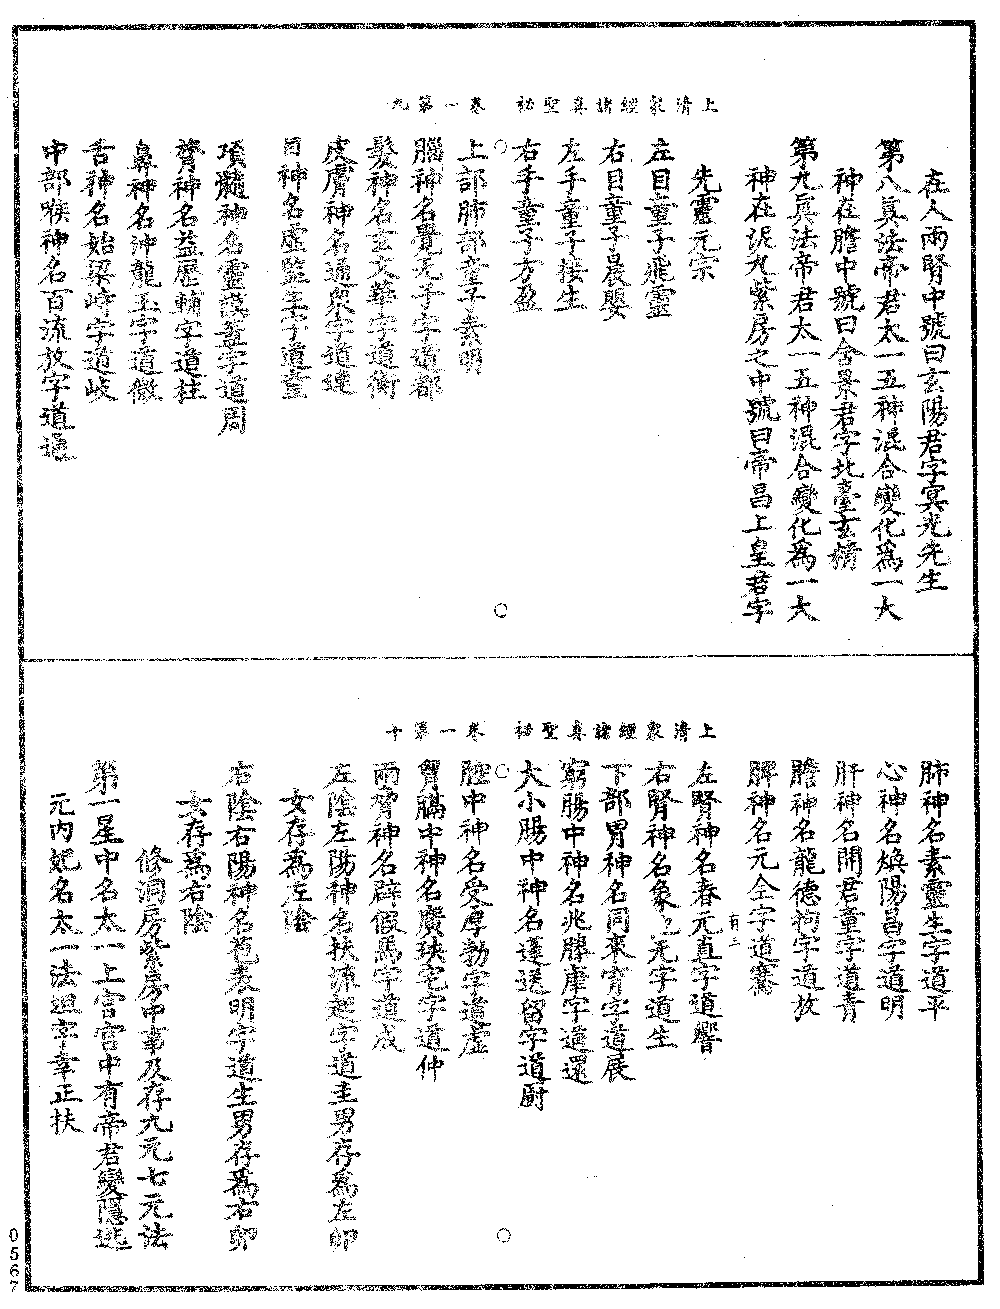 上清衆經諸真聖祕　卷一第九
在人兩腎中號曰玄陽君字冥光先生
第八真法帝君太一五神混合變化爲一大
神在膽中號曰含景君字北臺玄精
第九真法帝君太一五神混合變化爲一大
神在泥丸紫房之中號曰帝昌上皇君字
先靈元宗
左目童子飛靈
右目童子晨嬰
左手童子接生
右手童子方盈
上部肺部童子素明
腦神名覺无子字道都
髮神名玄文華字道衡
皮膚神名通衆字道連
目神名虛監生字道童
項髓神名靈謨蓋字道周
膂神名益歷輔字道柱
鼻神名沖龍玉字道微
舌神名始梁峙字道岐
中部喉神名百流放字道通
上清衆經諸真聖祕　卷一第十
肺神名素靈生字道平
心神名煥陽昌字道明
肝神名開君童字道青
膽神名龍德拘字道放
脾神名元全字道騫
有二
左腎神名春元直字道響
右腎神名象他无字道生
下部胃神名同來育字道展
窮腸中神名兆滕康字道還
大小腸中神名蓬送留字道廚
膛中神名受厚勃字道虛
胃膈中神名廣瑛宅字道仲
兩脅神名辟假馬字道成
左陰左陽神名扶流起字道圭男存爲左卯
女存爲左陰
右陰右陽神名苞表明字道生男存爲右卯
女存爲右陰
脩洞房紫房中事及存九元七元法
第一星中名太一上宮宮中有帝君變隱逃
元內妃名太一法迴字幸正扶
0567